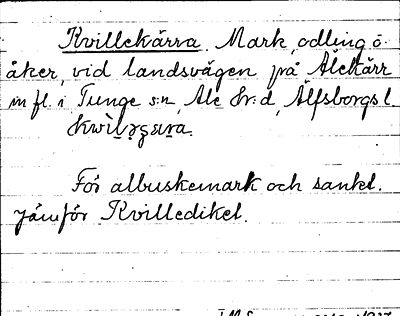 Kvillekärra. Mark, odling o.
åker, vid landsvägen på Alekärr
m fl. i Tunge s:n, Ale Hr:d, Älfsborgs l.
För albuskemark och sankt.
Jämför Kvillediket.